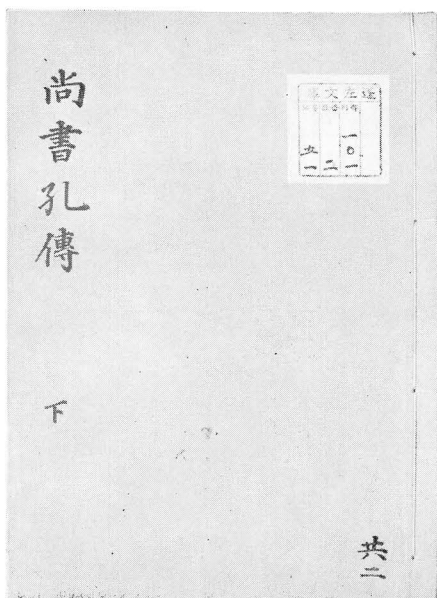 尚書孔傳
下
蓬左文庫
一〇一
二
五一
共二